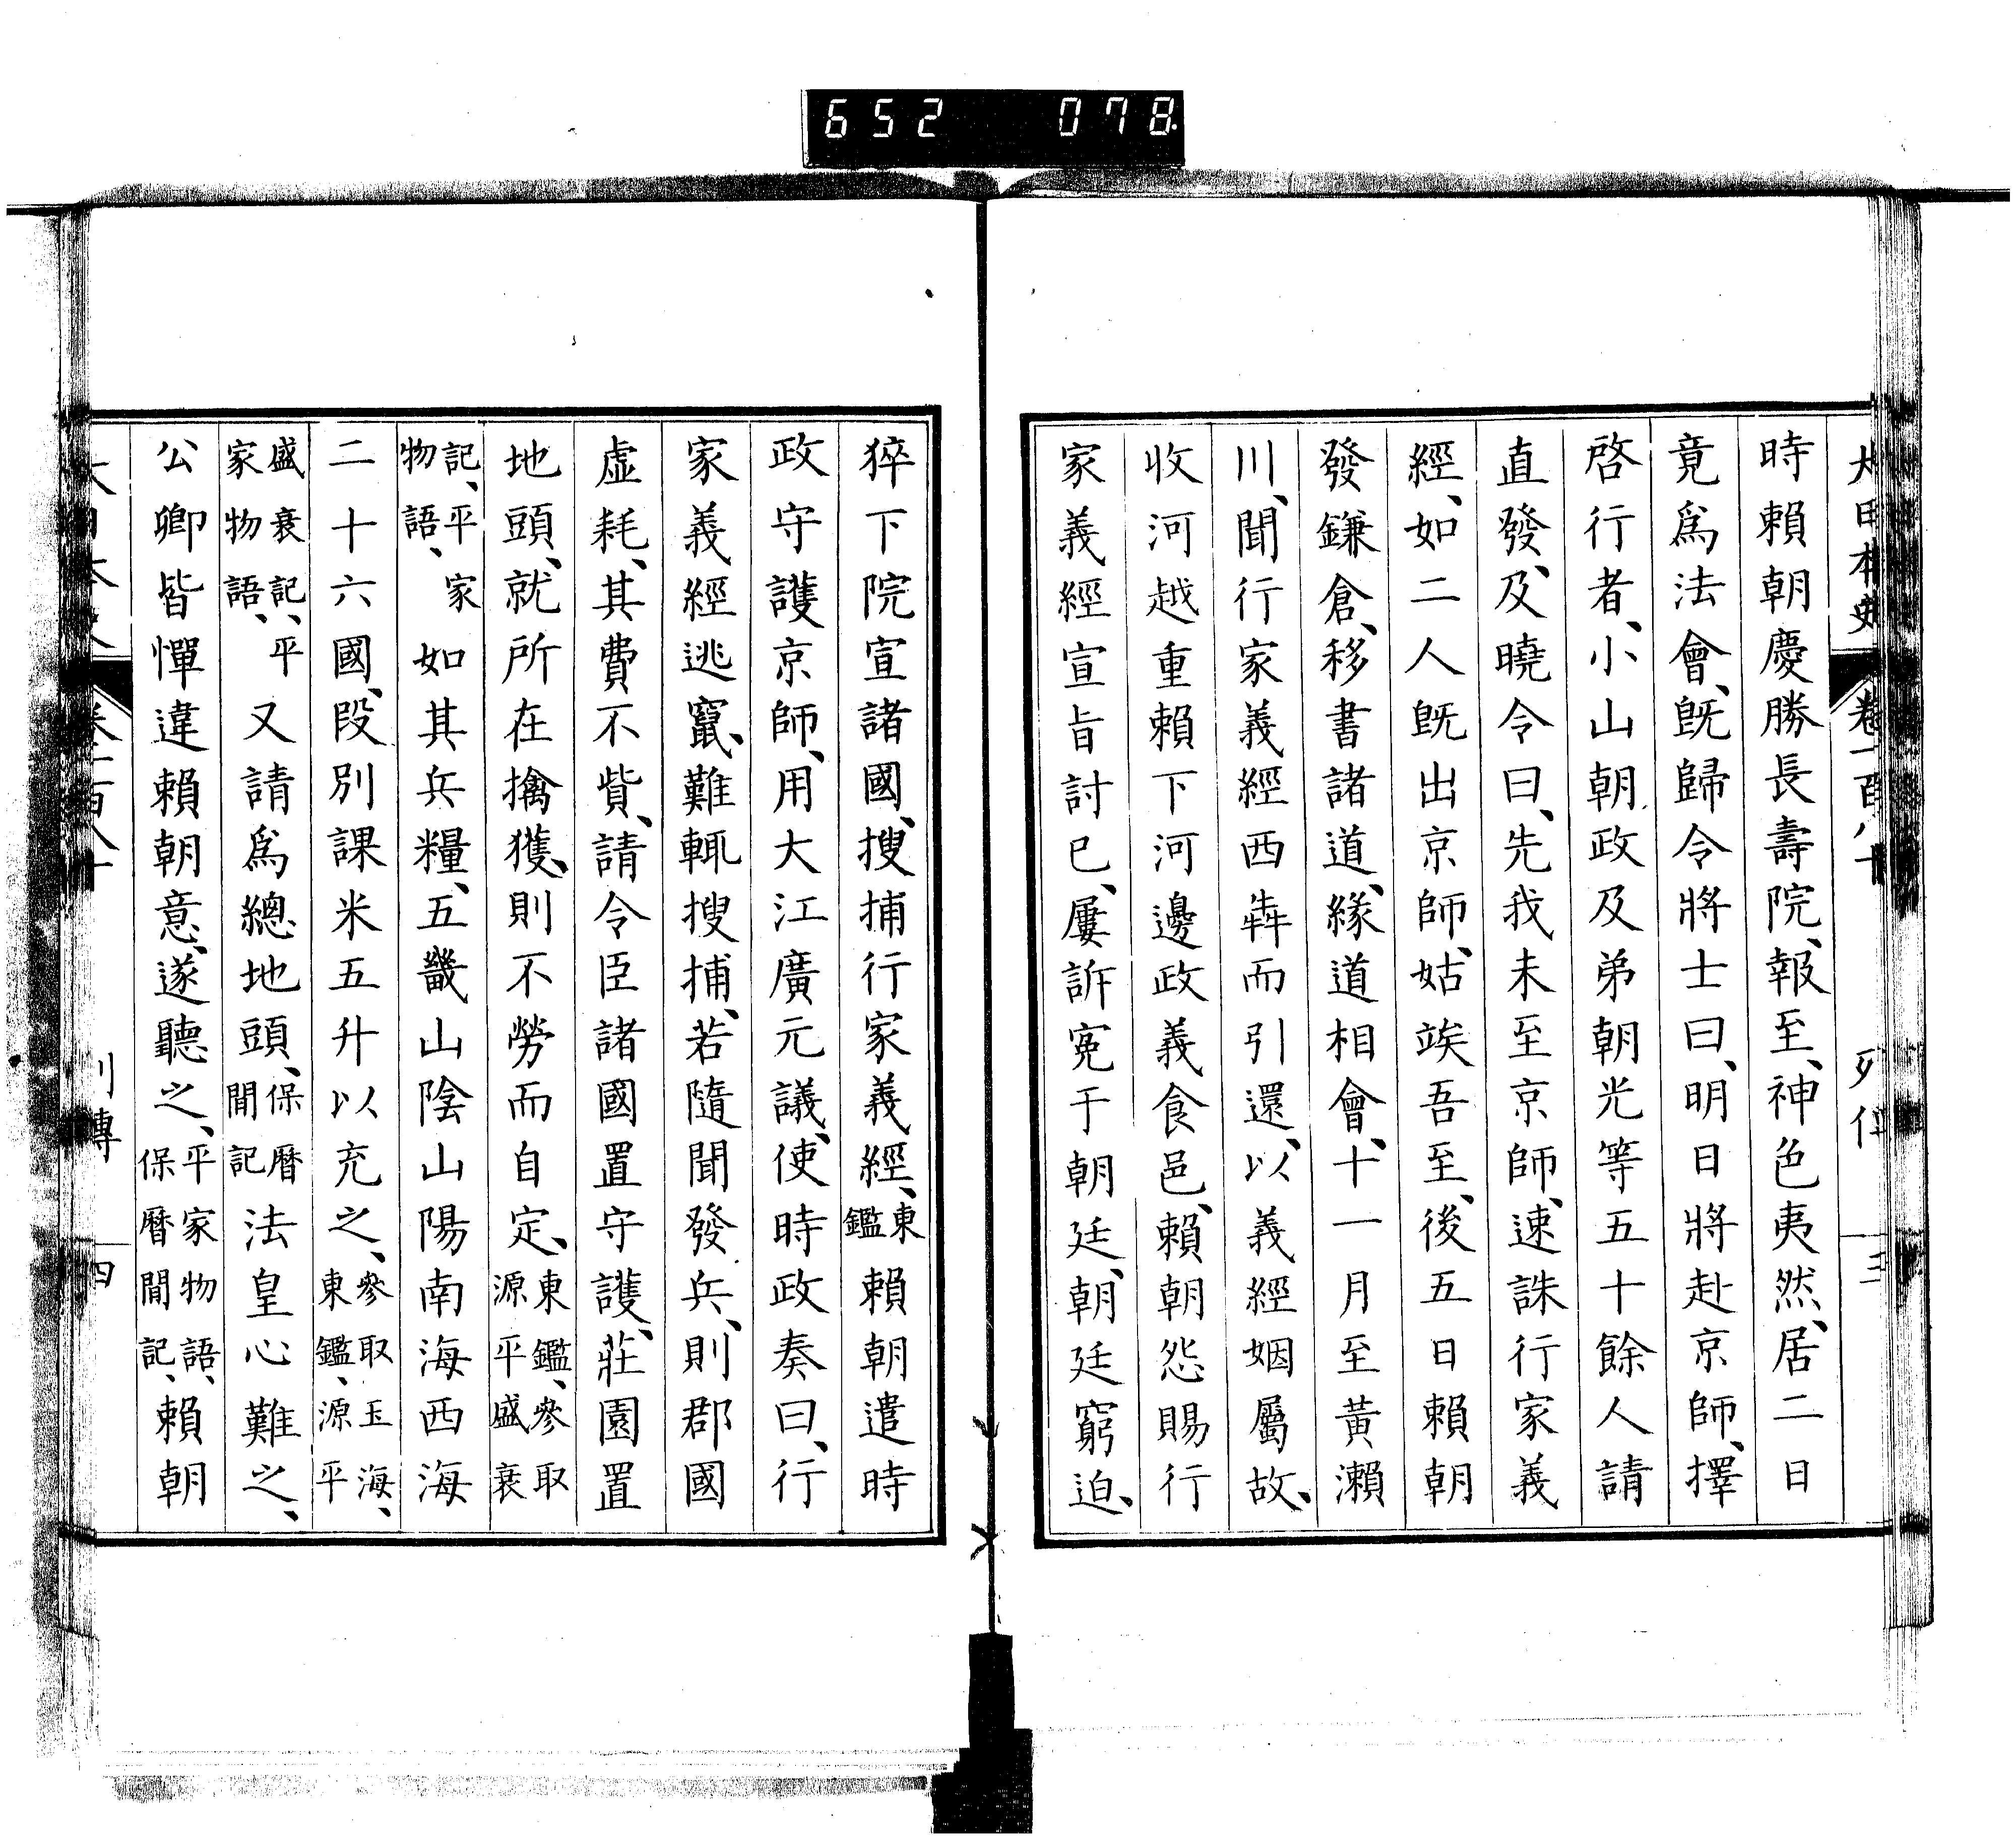 652 078
大日本史 卷一百八十 列傳 三
時賴朝慶勝長壽院、報至、神色夷然、居二日
竟爲法會、旣歸令將士曰、明日將赴京師、擇
啓行者、小山朝政及弟朝光等五十餘人請
直發、及曉令曰、先我未至京師、速誅行家義
經、如二人旣出京師、姑竢吾至、後五日賴朝
發鎌倉、移書諸道、緣道相會、十一月至黃瀨
川、聞行家義經西犇而引還、以義經姻屬故、
收河越重賴下河邊政義食邑、賴朝怨賜行
家義經宣旨討已、屢訴寃于朝廷、朝廷窮迫、
猝下院宣諸國、搜捕行家義經、東鑑賴朝遣時
政守護京師、用大江廣元議、使時政奏曰、行
家義經逃竄、難輒搜捕、若隨聞發兵、則郡國
虛耗、其費不貲、請令臣諸國置守護、莊園置
地頭、就所在擒獲、則不勞而自定、東鑑、參取源平盛衰
記、平家物語、如其兵糧、五畿山陰山陽南海西海
二十六國、段別課米五升以充之、參取玉海、東鑑、源平
盛衰記、平家物語、又請爲總地頭、保曆間記法皇心難之、
公卿皆憚違賴朝意、遂聽之、平家物語、保曆間記、賴朝
大日本史 卷一百八十 列傳 四